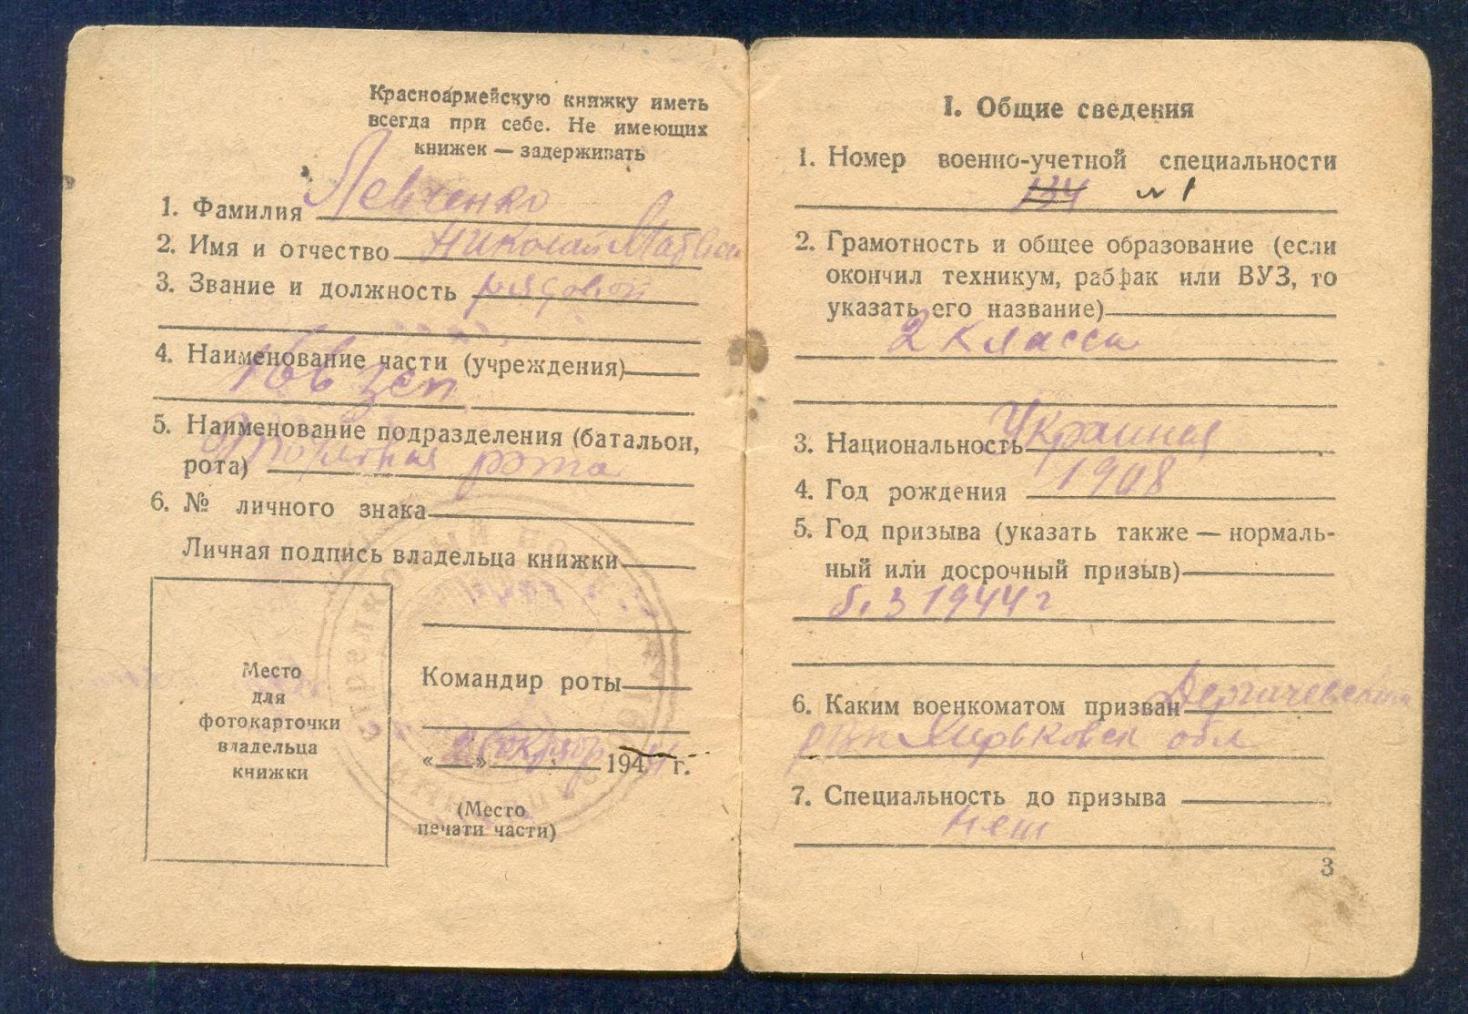 Красноармейскую книжку иметь
всегда при себе. Не имеющих
книжек — задерживать
1. Фамилия Левченко
2. Имя и отчество Николай
3. Звание и должность рядовой
4. Наименование части (учреждения)
зсп
5. Наименование подразделения (батальон,
рота) рота
6. № личного знака
Личная подпись владельца книжки
Место
для
фотокарточки
владельца
книжки
Командир роты
« » 194 г.
(Место
печати части)
I. Общие сведения
1. Номер военно-учетной специальности
134 №1
2. Грамотность и общее образование (если
окончил техникум, рабфак или ВУЗ, то
указать его название)
2 класса
3. Национальность
4. Год рождения 1908
5. Год призыва (указать также — нормаль-
ный или досрочный призыв)
1944 г
6. Каким военкоматом призван Дергачевский
обл
7. Специальность до призыва
нет
3